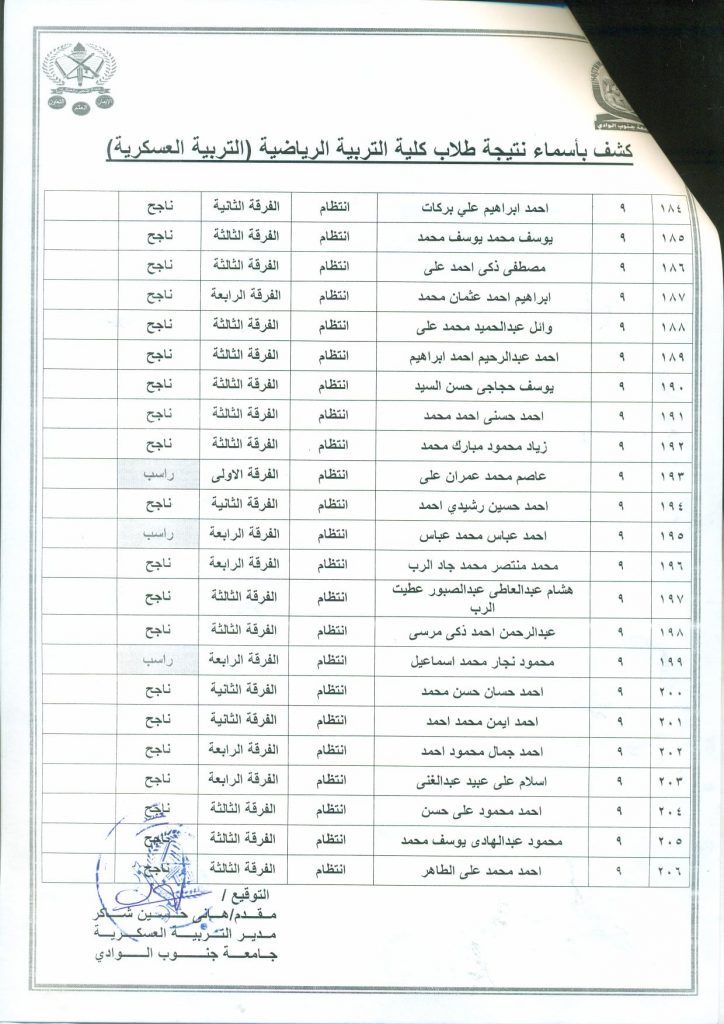 الإيمان
العلم
التعاون
جامعة جنوب الوادي
كشف بأسماء نتيجة طلاب كلية التربية الرياضية (التربية العسكرية)
١٨٤ ٩ احمد ابراهيم علي بركات انتظام الفرقة الثانية ناجح
١٨٥ ٩ يوسف محمد يوسف محمد انتظام الفرقة الثالثة ناجح
١٨٦ ٩ مصطفى ذكى احمد على انتظام الفرقة الثالثة ناجح
١٨٧ ٩ ابراهيم احمد عثمان محمد انتظام الفرقة الرابعة ناجح
١٨٨ ٩ وائل عبدالحميد محمد على انتظام الفرقة الثالثة ناجح
١٨٩ ٩ احمد عبدالرحيم احمد ابراهيم انتظام الفرقة الثالثة ناجح
١٩٠ ٩ يوسف حجاجى حسن السيد انتظام الفرقة الثالثة ناجح
١٩١ ٩ احمد حسنى احمد محمد انتظام الفرقة الثالثة ناجح
١٩٢ ٩ زياد محمود مبارك محمد انتظام الفرقة الثالثة ناجح
١٩٣ ٩ عاصم محمد عمران على انتظام الفرقة الاولى راسب
١٩٤ ٩ احمد حسين رشيدي احمد انتظام الفرقة الثانية ناجح
١٩٥ ٩ احمد عباس محمد عباس انتظام الفرقة الرابعة راسب
١٩٦ ٩ محمد منتصر محمد جاد الرب انتظام الفرقة الرابعة ناجح
١٩٧ ٩ هشام عبدالعاطى عبدالصبور عطيت انتظام الفرقة الثالثة ناجح
الرب
١٩٨ ٩ عبدالرحمن احمد ذكى مرسى انتظام الفرقة الثالثة ناجح
١٩٩ ٩ محمود نجار محمد اسماعيل انتظام الفرقة الرابعة راسب
٢٠٠ ٩ احمد حسان حسن محمد انتظام الفرقة الثانية ناجح
٢٠١ ٩ احمد ايمن محمد احمد انتظام الفرقة الثانية ناجح
٢٠٢ ٩ احمد جمال محمود احمد انتظام الفرقة الرابعة ناجح
٢٠٣ ٩ اسلام على عبيد عبدالغنى انتظام الفرقة الرابعة ناجح
٢٠٤ ٩ احمد محمود على حسن انتظام الفرقة الثالثة ناجح
٢٠٥ ٩ محمود عبدالهادى يوسف محمد انتظام الفرقة الثالثة ناجح
٢٠٦ ٩ احمد محمد على الطاهر انتظام الفرقة الثالثة ناجح
التوقيع /
مقدم/هانى حسين شاكر
مدير التربية العسكرية
جامعة جنوب الوادي